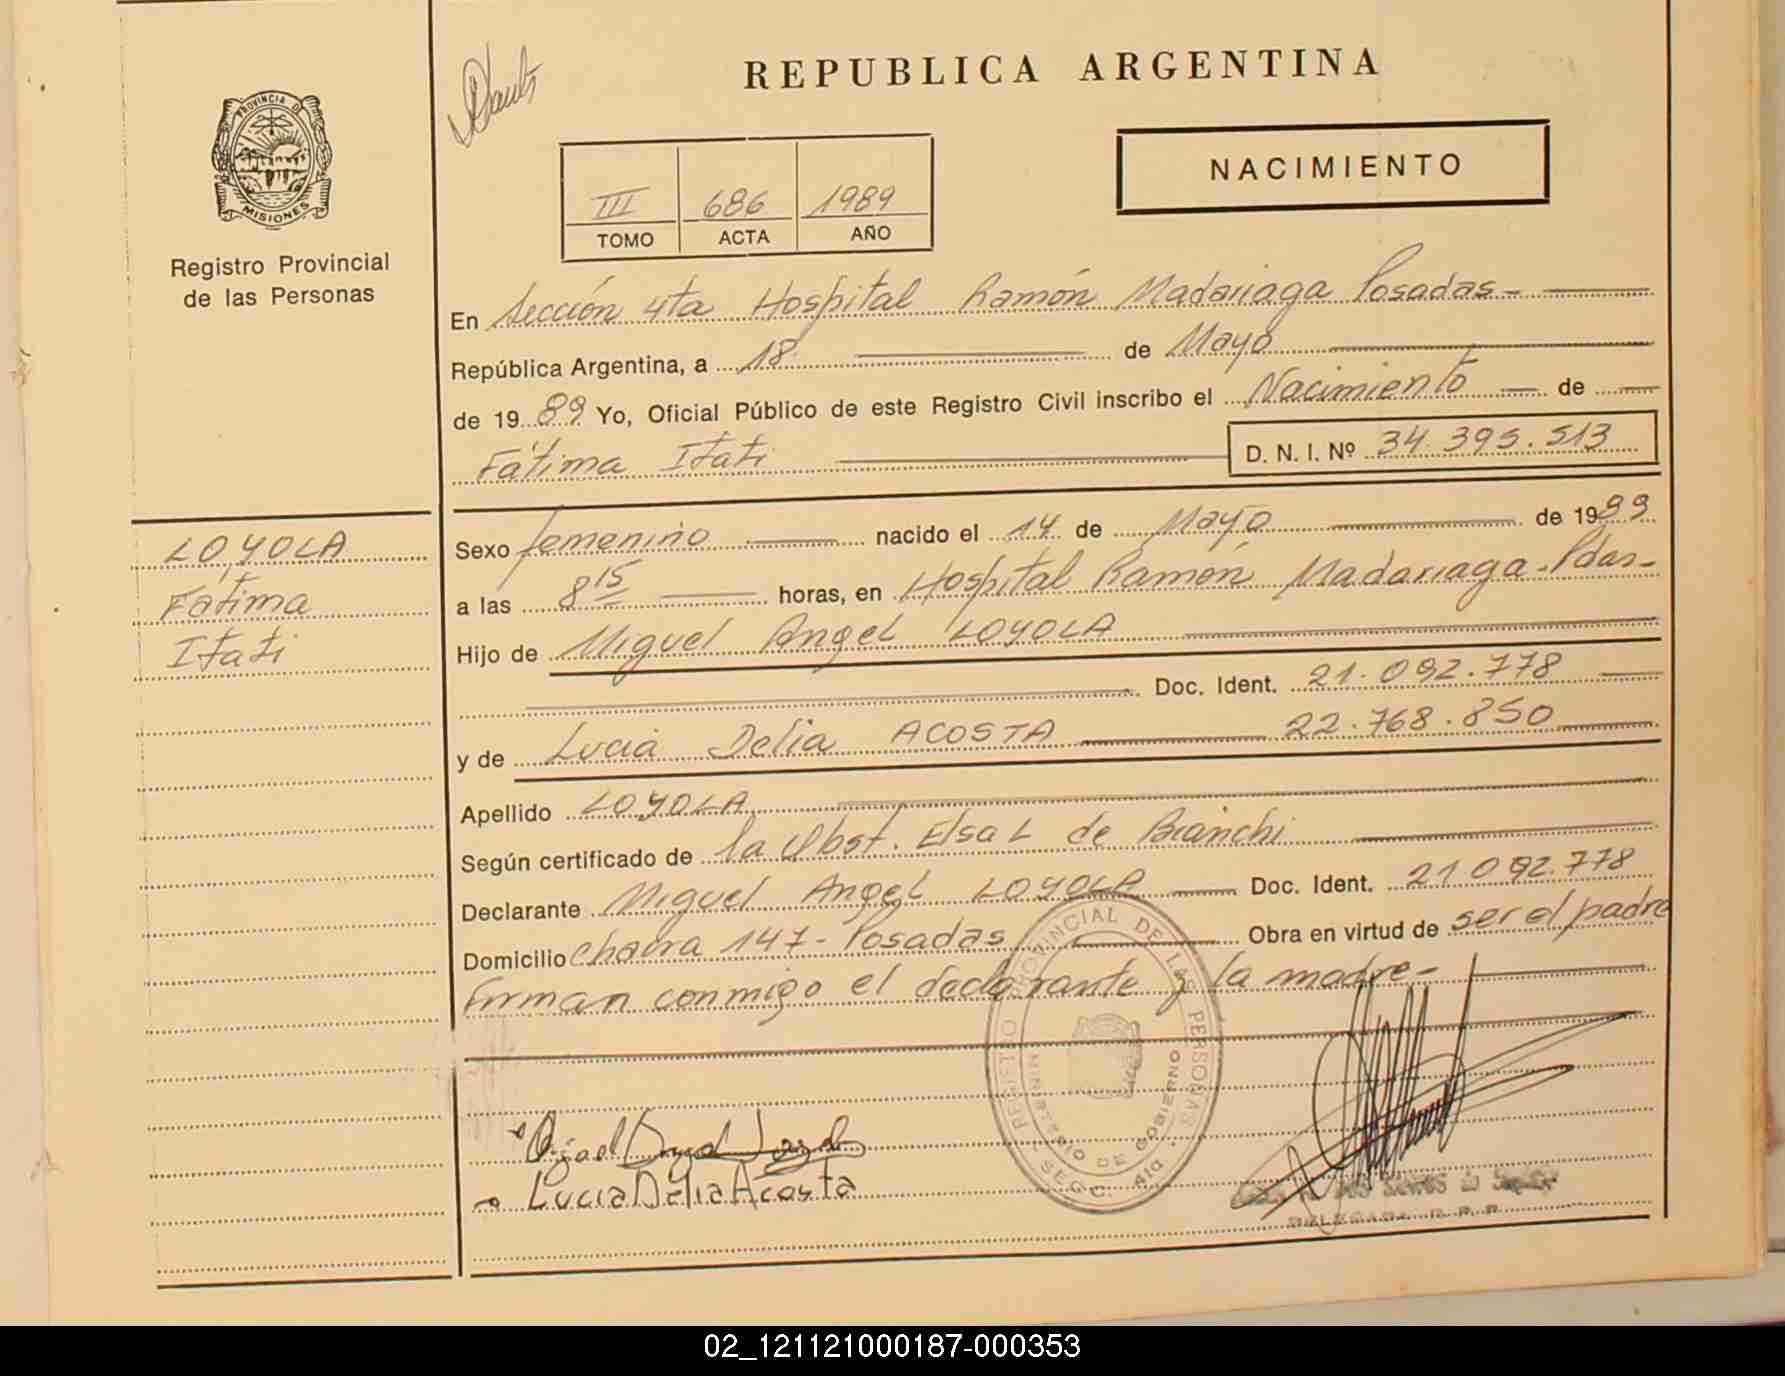 REPUBLICA ARGENTINA
PROVINCIA DE
MISIONES
Registro Provincial
de las Personas
NACIMIENTO
III 686 1989
TOMO ACTA AÑO
En Sección 4ta Hospital Ramón Madariaga Posadas-
República Argentina, a 18 de Mayo
de 1989 Yo, Oficial Público de este Registro Civil inscribo el Nacimiento de
Fátima Itati D. N. I. Nº 34.395.513
LOYOLA
Fátima
Itati
Sexo femenino nacido el 14 de Mayo de 1989
a las 8 15 horas, en Hospital Ramón Madariaga-Pdas-
Hijo de Miguel Angel LOYOLA
Doc. Ident. 21.092.778
y de Lucia Delia ACOSTA 22.768.850
Apellido LOYOLA
Según certificado de la Obst. Elsa L de Bianchi
Declarante Miguel Angel LOYOLA Doc. Ident. 21092.778
Domicilio chacra 147-Posadas Obra en virtud de ser el padre
Firman conmigo el declarante y la madre-
REGISTRO PROVINCIAL DE LAS PERSONAS
MINISTERIO DE GOBIERNO
SECC. 4ta
Lucia Delia Acosta
02_121121000187-000353